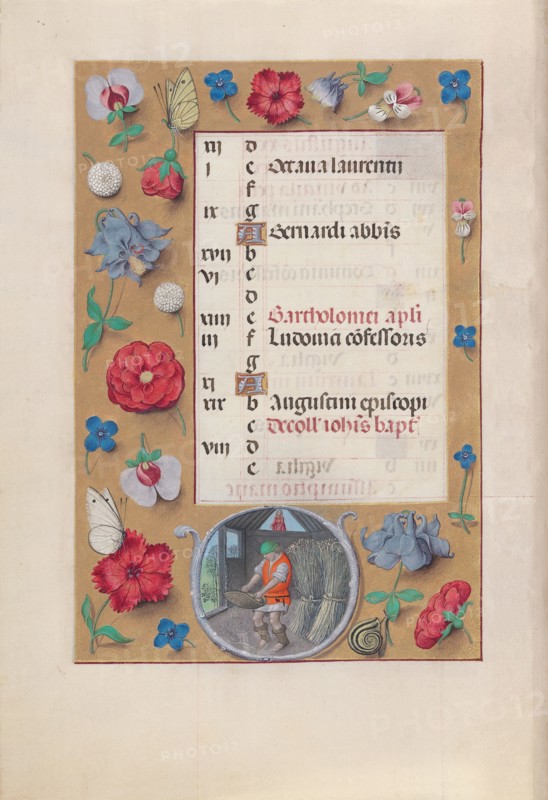 xij d
i e Octaua laurentii
f
ix g
A Bernardi abbis
xvij b
vj c
d
xiiij e Bartholomei apli
iij f Ludouici cõfessoris
g
xj A
xix b Augustini episcopi
c Decoll' iohis bapt
viij d
e
PHOTO12